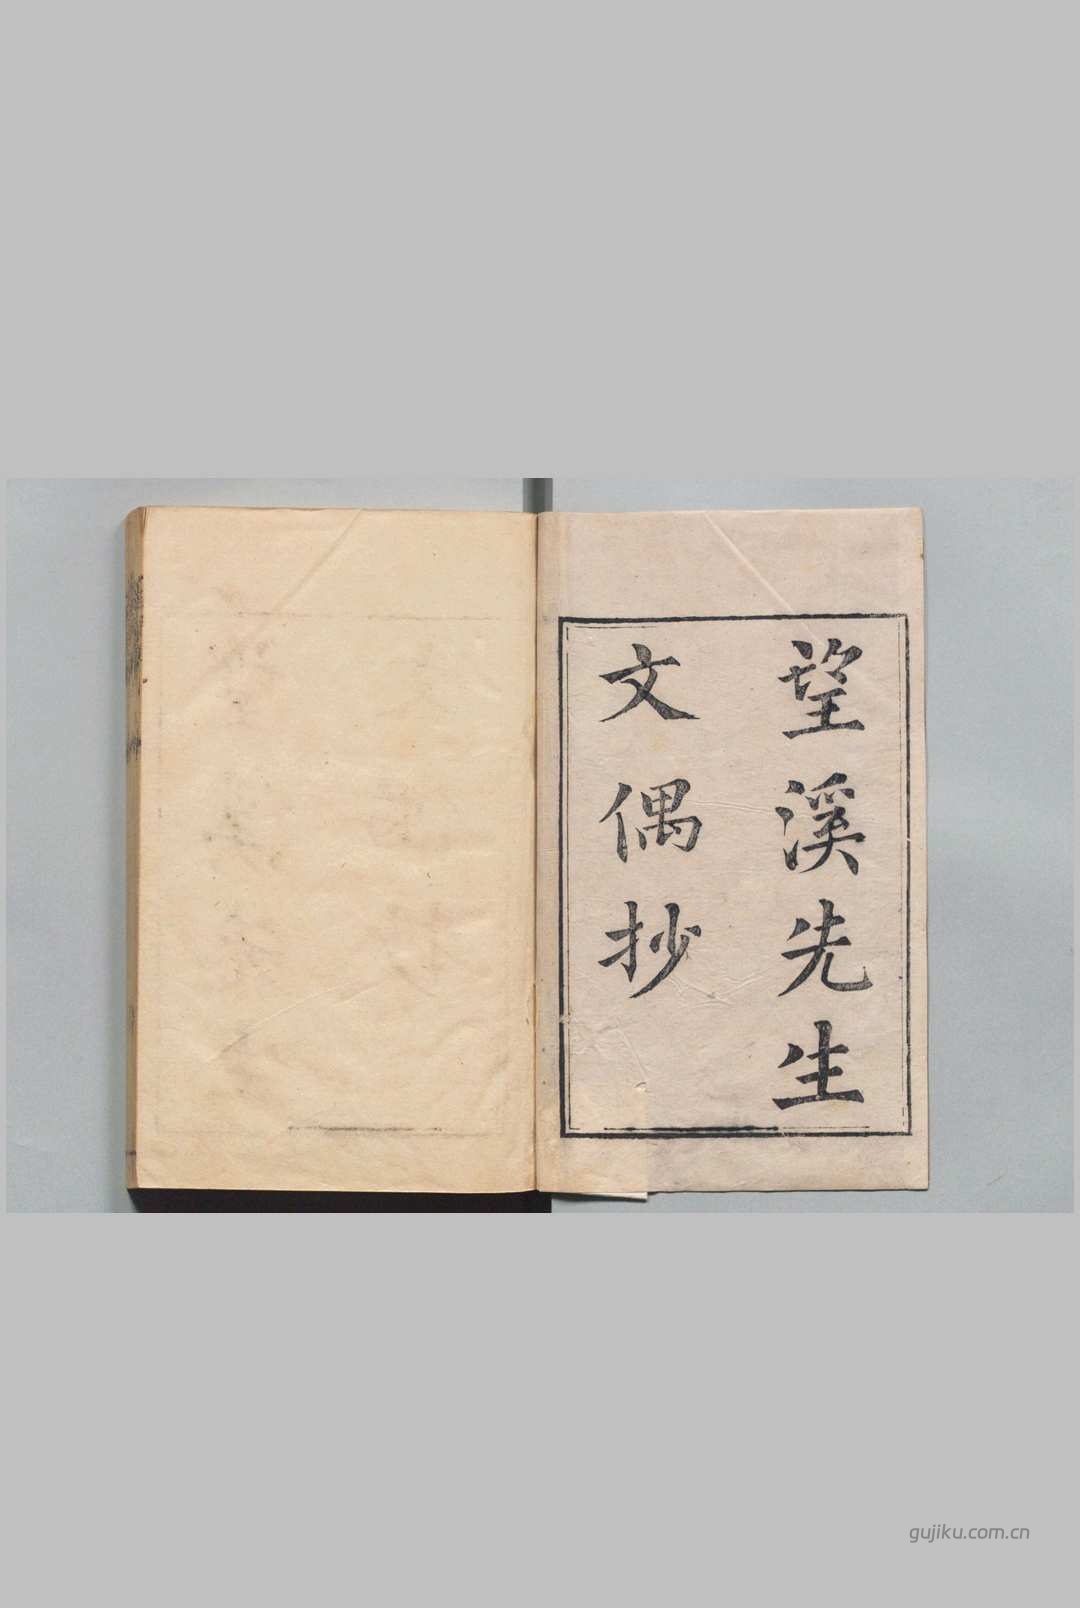 望溪先生
文偶抄
gujiku.com.cn